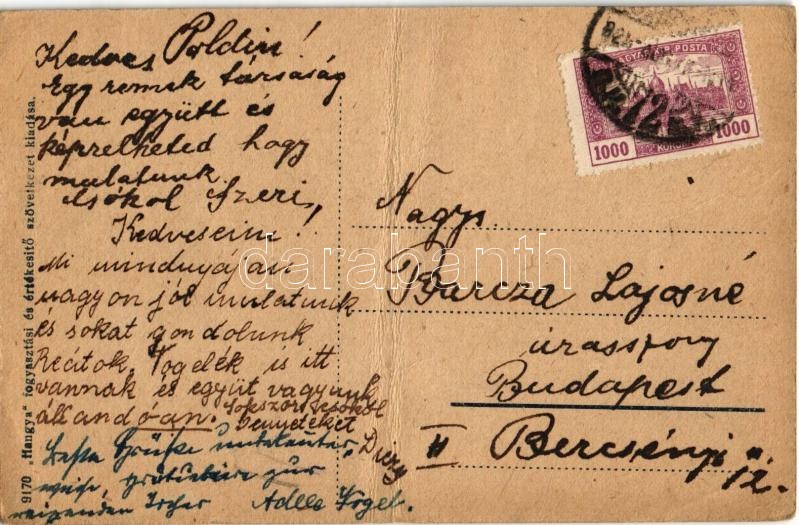 Kedves Poldin!
Egy remek társaság
van együtt és
képzelheted hogy
mulatunk.
Csókol Szeri
Kedveseim!
Mi mindnyájan
nagyon jól mulatunk
és sokat gondolunk
Reátok. Vogelék is itt
vannak és együt vagyunk
állandóan. Sokszor csókol
benneteket
Dizsy
Beste Grüße unbekannter-
weise, gratuliere zur
reizenden
Adele Vogel.
Nagys
Barcza Lajosné
úrasszony
Budapest
II Bercsényi u.
12.
MAGYAR KIR. POSTA
1000 KORONA 1000
9170 „Hangya" fogyasztási és értékesítő szövetkezet kiadása.
darabanth